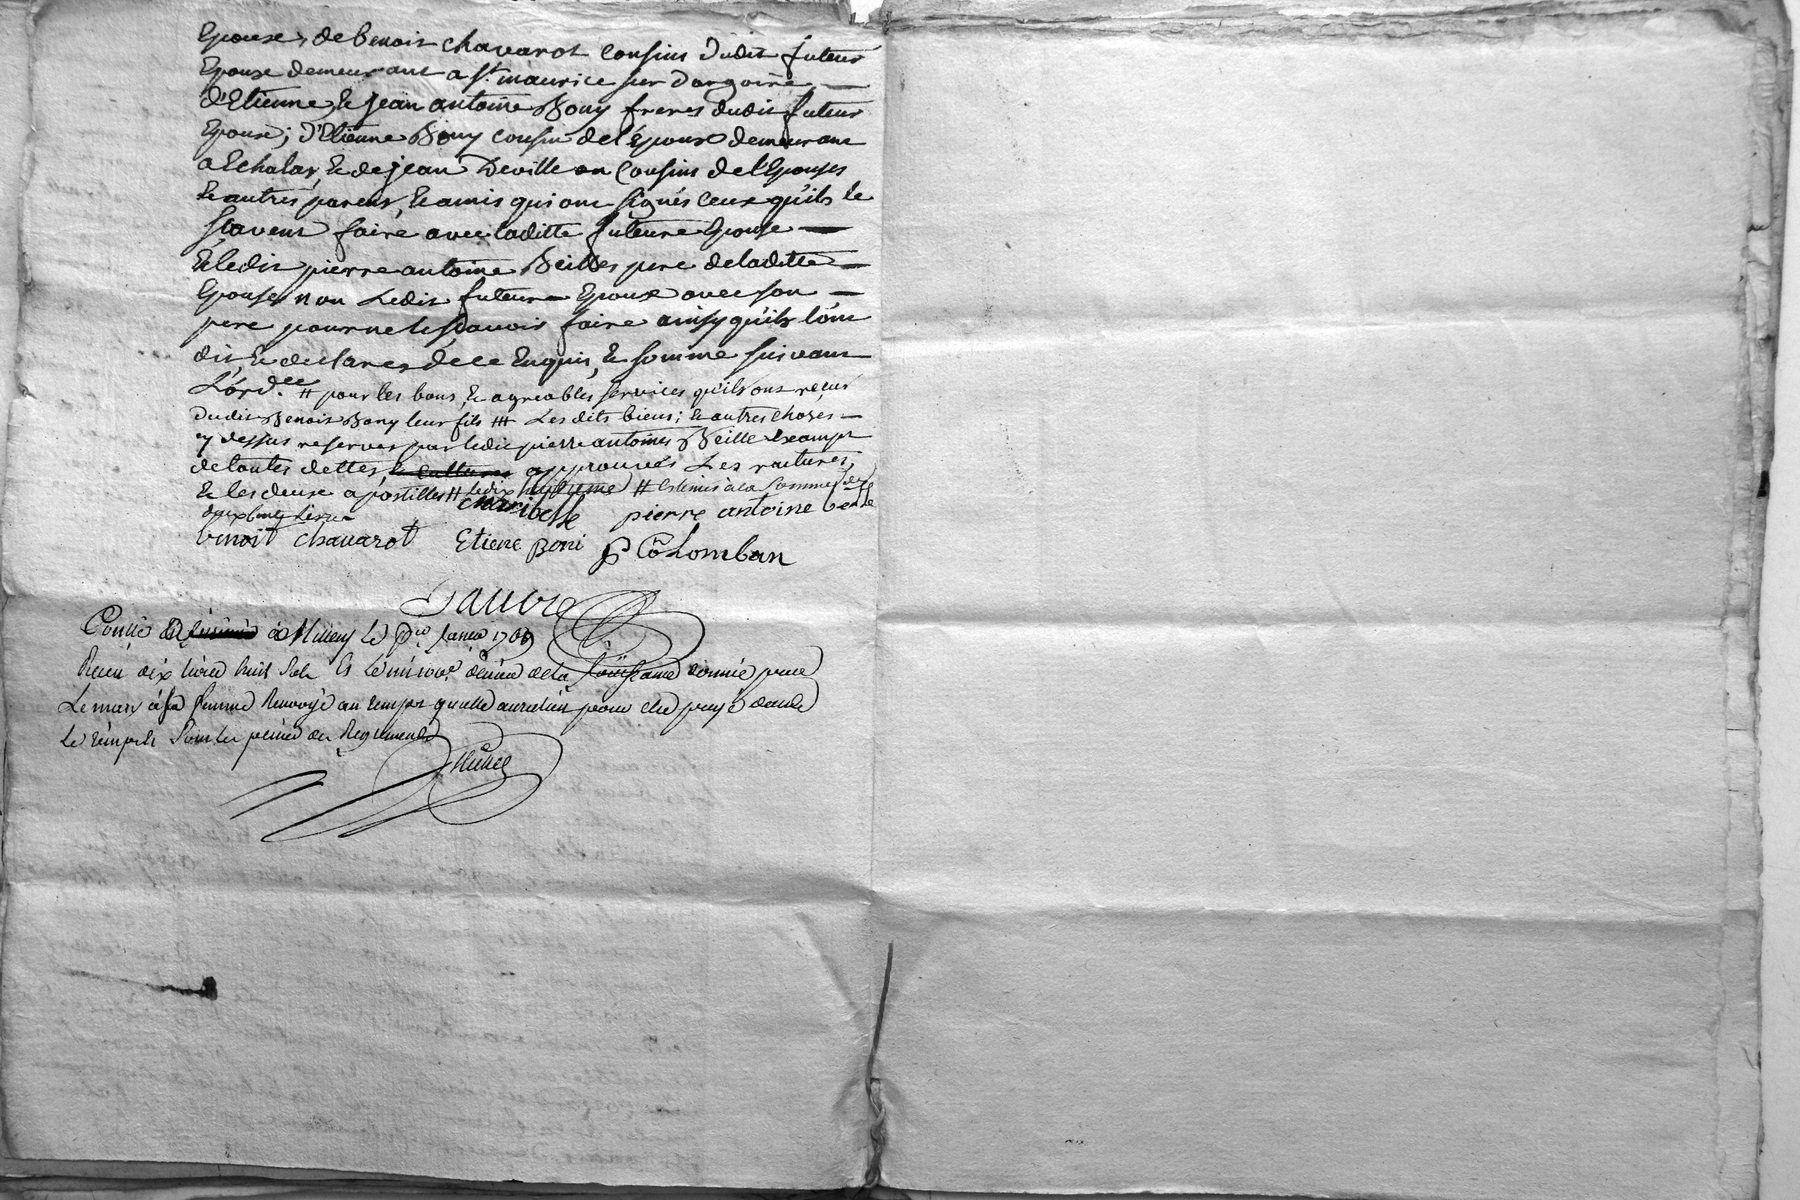 Epouse, de benoit chavarot cousins dudit futeur
Epoux demeurant a St. maurice sur dargoire
d'Etienne, & jean antoine Bony freres dudit futeur
Epoux; d'Etienne Bony cousin de l'Epoux demeurant
a Echalas, & de jean Deville un cousins de l'Epouse
& autres parens, & amis qui ont signés ceux qu'ils le
scavent faire avec laditte futeure Epouse
& ledit pierre antoine Beille pere de laditte
Epouse non Ledit futeur Epoux avec son
pere pour ne le scavoir faire ainsy qu'ils l'ont
dit, & declares de ce Enquis, & somme suivant
L'ord.ce # pour les bons, & agreables services qu'ils ont reçus
dudit Benoit Bony leur fils ## Les dits biens; & autres choses
cy dessus reserves par ledit pierre antoine Beille Exampt
de toutes dettes approuvés Les ratures,
& les deux apostilles # # Estimés a la somme de
benoit chavarot Etiene Boni P Colomban
pierre antoine
Conlé à Millery le p.er Janvier
Receu dix livres huit sols
Le mary à sa femme Renvoyé au temps quelle aura lieu pour etre payé dans
le temps sous les peines des Reglements